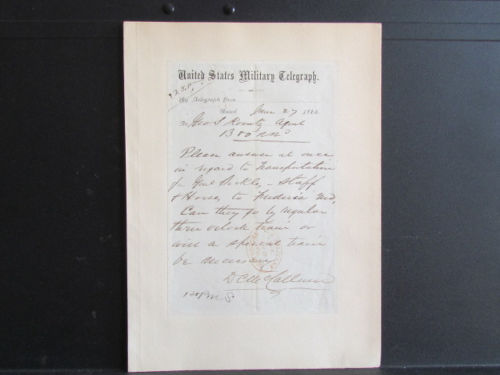 United States Military Telegraph.
By Telegraph from
Dated June 27 186
To Geo S Koontz Agent
B & O RR
Please answer at once
in regard to Transportation
for Genl Sickles, Staff
& Horses, to Frederick Md,
Can they go by regular
three oclock train or
will a special train
be necessary
D C McCallum